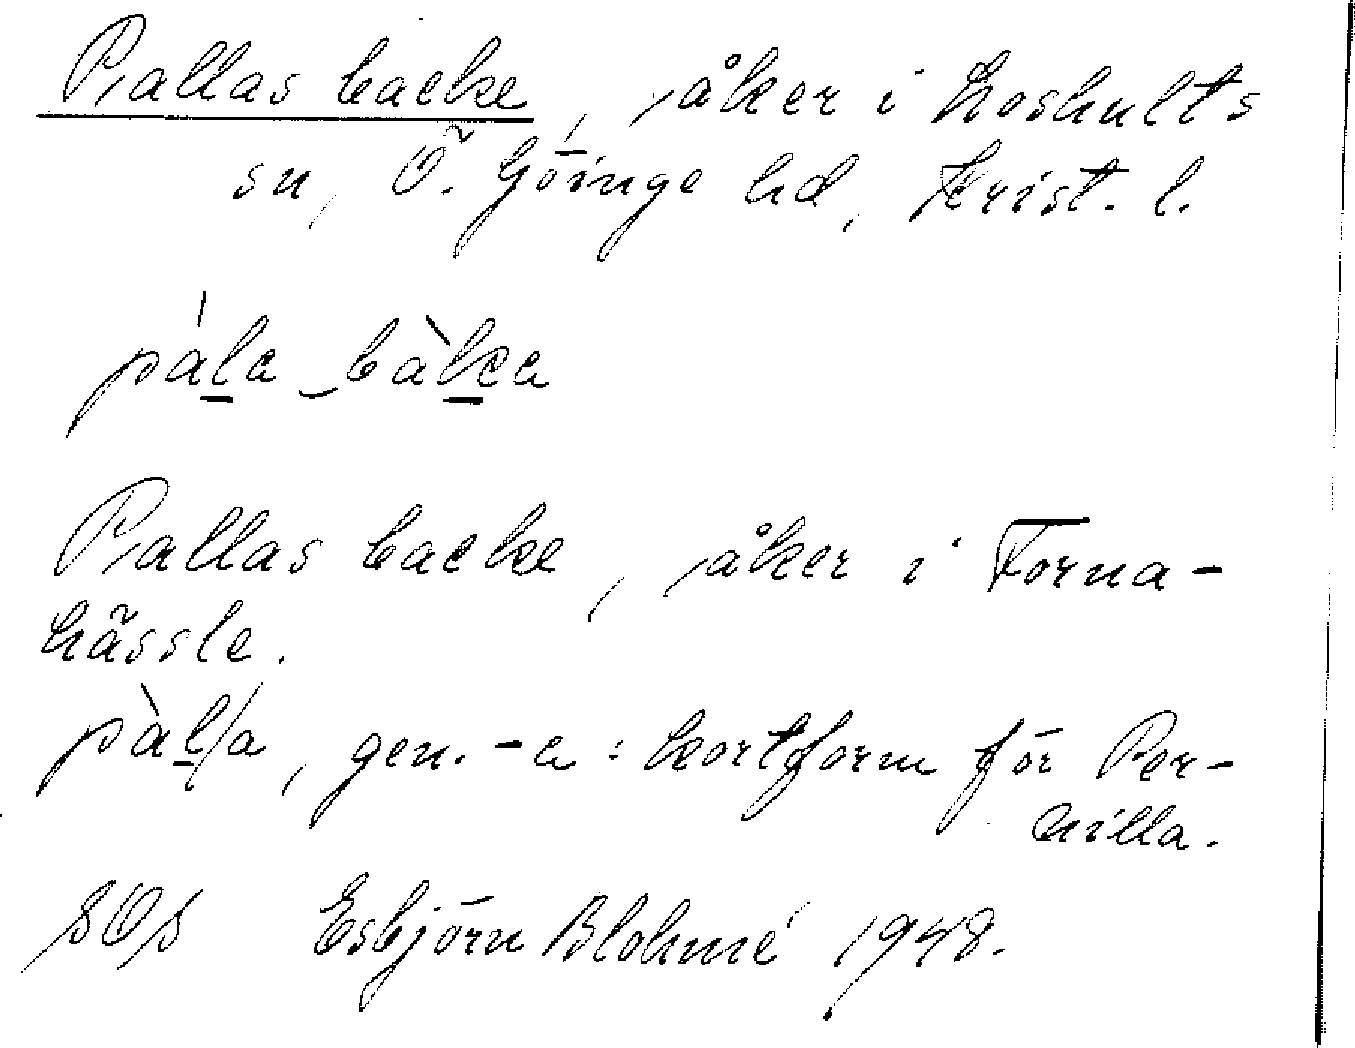 Pallas backe, åker i Loshults
sn, Ö. Göinge hd, Krist. l.
pála bàkca
Pallas backe, åker i Forna-
hässle.
pàl/a, gen. -a : kortform för Per-
nilla.
SOS Esbjörn Blohmé 1948.